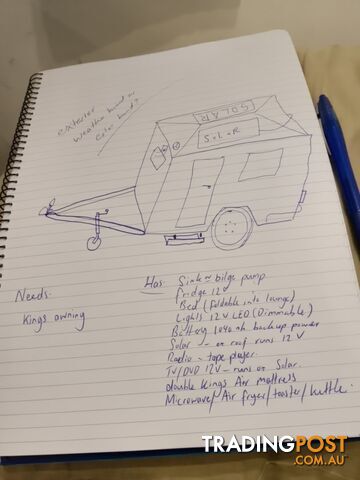 exterior
weather board or
color bond?
SOLAR
SOLAR
Has: Sink w bilge pump
fridge 12v
Needs:
Bed (foldable into lounge)
Lights 12V LED (Dimmable)
Kings awning
Battery 1040ah backup power
Solar - on roof runs 12 V
Radio - tape player.
TV/DVD 12V - runs on Solar.
double Kings Air mattress
Microwave/Air fryer/toaster/kettle.
TRADINGPOST
.COM.AU